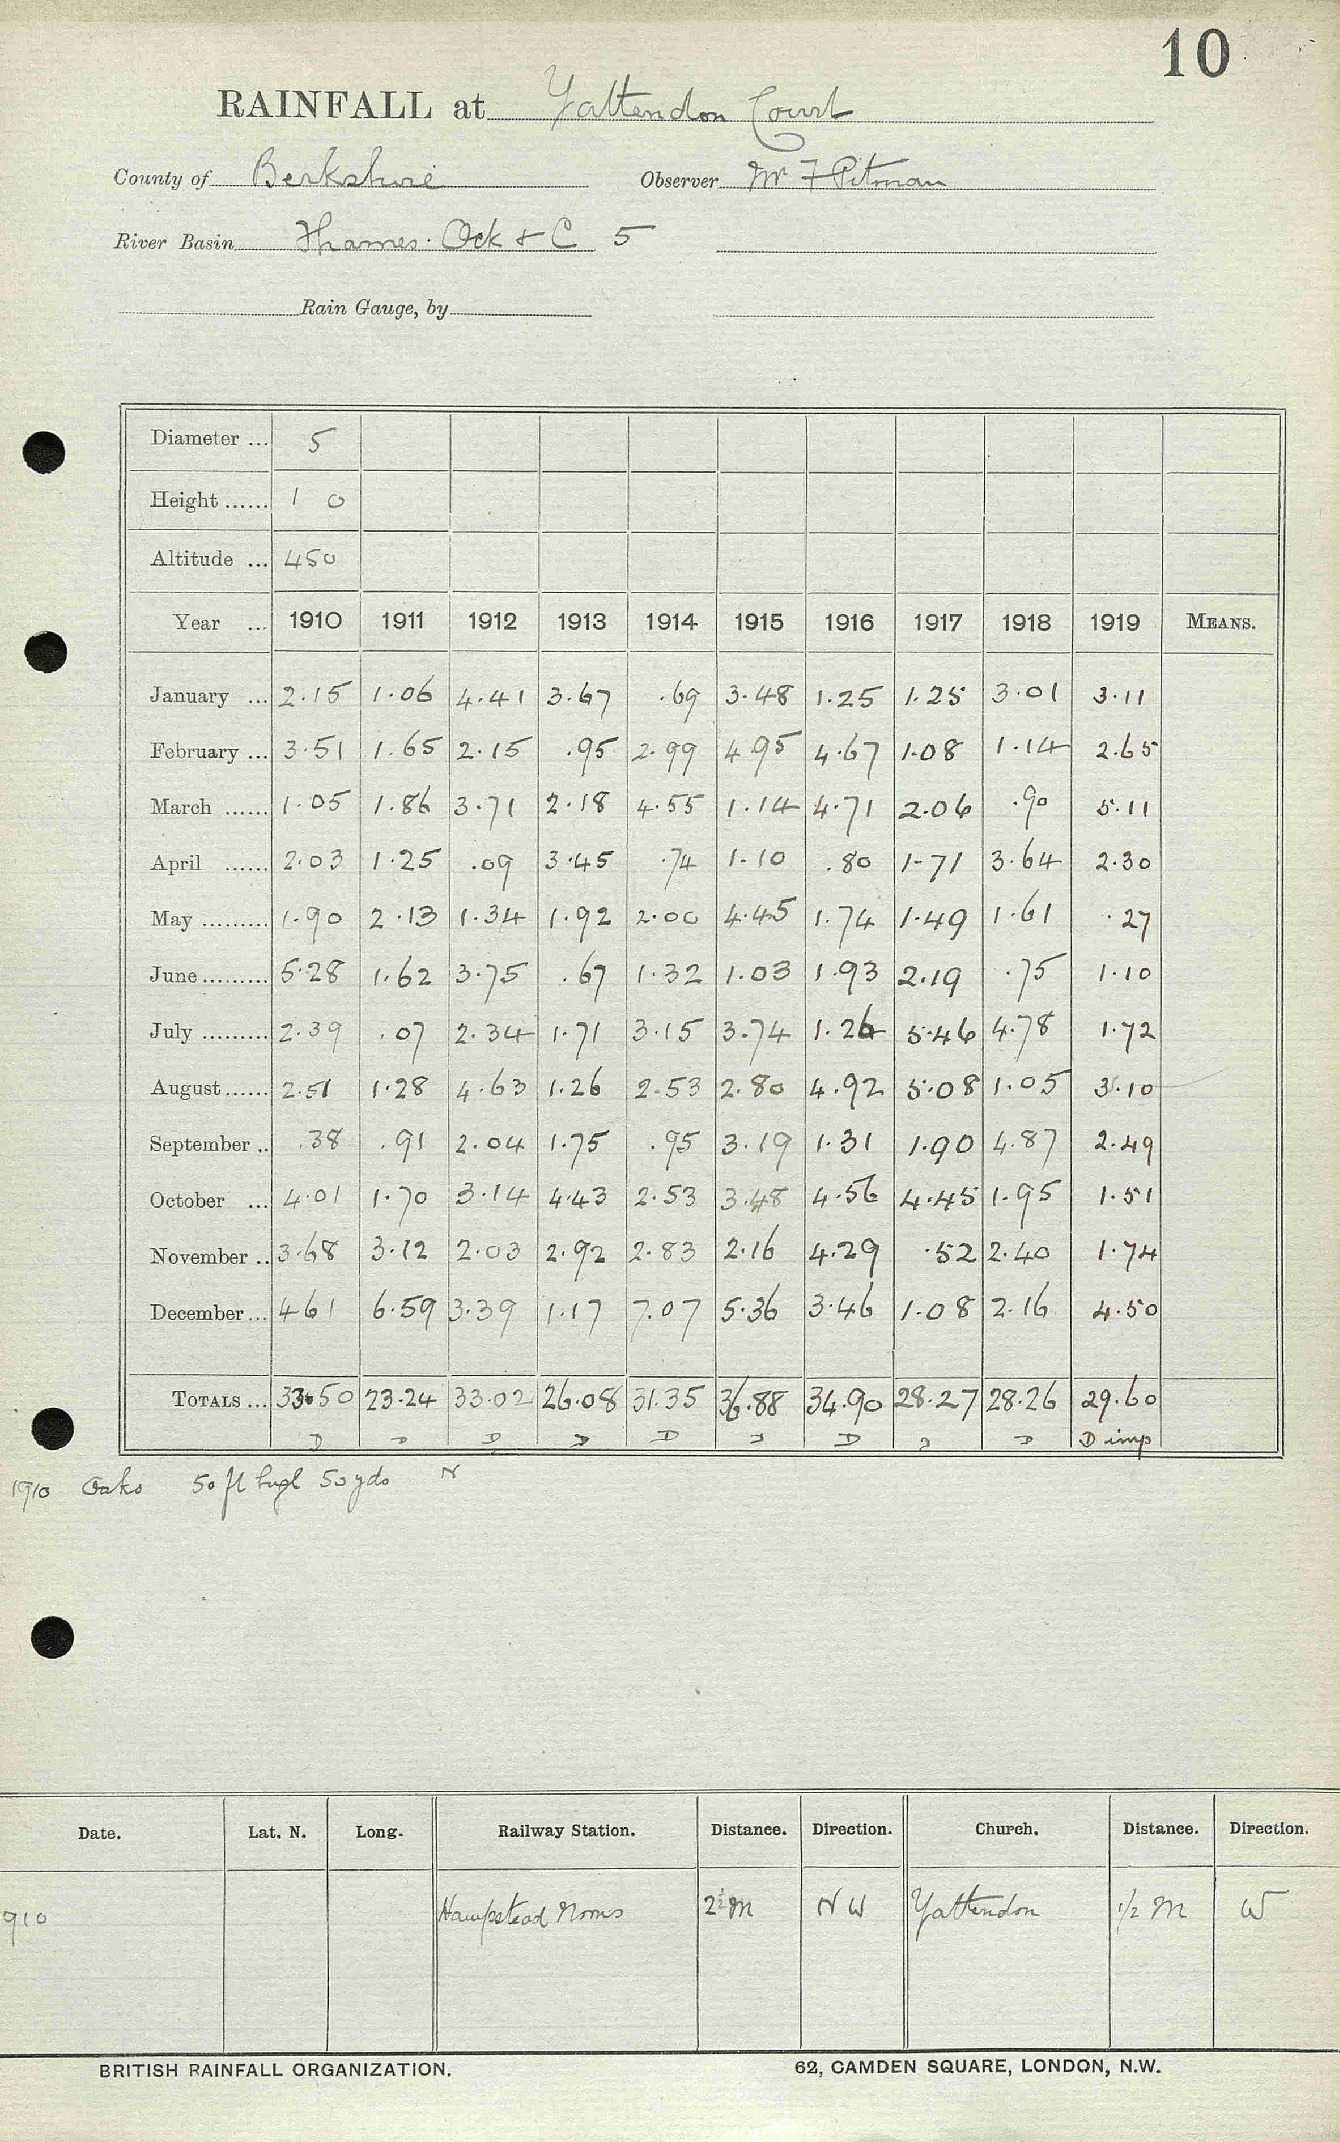 10
RAINFALL at Yattendon Court
County of Berkshire Observer Mr F Pitman
River Basin Thames. Ock & C 5
Rain Gauge, by
Diameter ... 5
Height ...... 1 0
Altitude ... 450
Year ... 1910 1911 1912 1913 1914 1915 1916 1917 1918 1919 MEANS.
January ... 2.15 1.06 4.41 3.67 .69 3.48 1.25 1.25 3.01 3.11
February ... 3.51 1.65 2.15 .95 2.99 4.95 4.67 1.08 1.14 2.65
March ...... 1.05 1.86 3.71 2.18 4.55 1.14 4.71 2.06 .90 5.11
April ...... 2.03 1.25 .09 3.45 .74 1.10 .80 1.71 3.64 2.30
May ......... 1.90 2.13 1.34 1.92 2.00 4.45 1.74 1.49 1.61 .27
June ......... 5.28 1.62 3.75 .67 1.32 1.03 1.93 2.19 .75 1.10
July ......... 2.39 .07 2.34 1.71 3.15 3.74 1.26 5.46 4.78 1.72
August ...... 2.51 1.28 4.63 1.26 2.53 2.80 4.92 5.08 1.05 3.10
September .. .38 .91 2.04 1.75 .95 3.19 1.31 1.90 4.87 2.49
October ... 4.01 1.70 3.14 4.43 2.53 3.48 4.56 4.45 1.95 1.51
November .. 3.68 3.12 2.03 2.92 2.83 2.16 4.29 .52 2.40 1.74
December ... 4.61 6.59 3.39 1.17 7.07 5.36 3.46 1.08 2.16 4.50
TOTALS ... 33.50 23.24 33.02 26.08 31.35 36.88 34.90 28.27 28.26 29.60
D D D D D D D D D D imp
1910 Oaks 50 ft high 50 yds N
Date. Lat. N. Long. Railway Station. Distance. Direction. Church. Distance. Direction.
910 Hampstead Norris 2½ M NW Yattendon 1/2 M W
BRITISH RAINFALL ORGANIZATION. 62, CAMDEN SQUARE, LONDON, N.W.